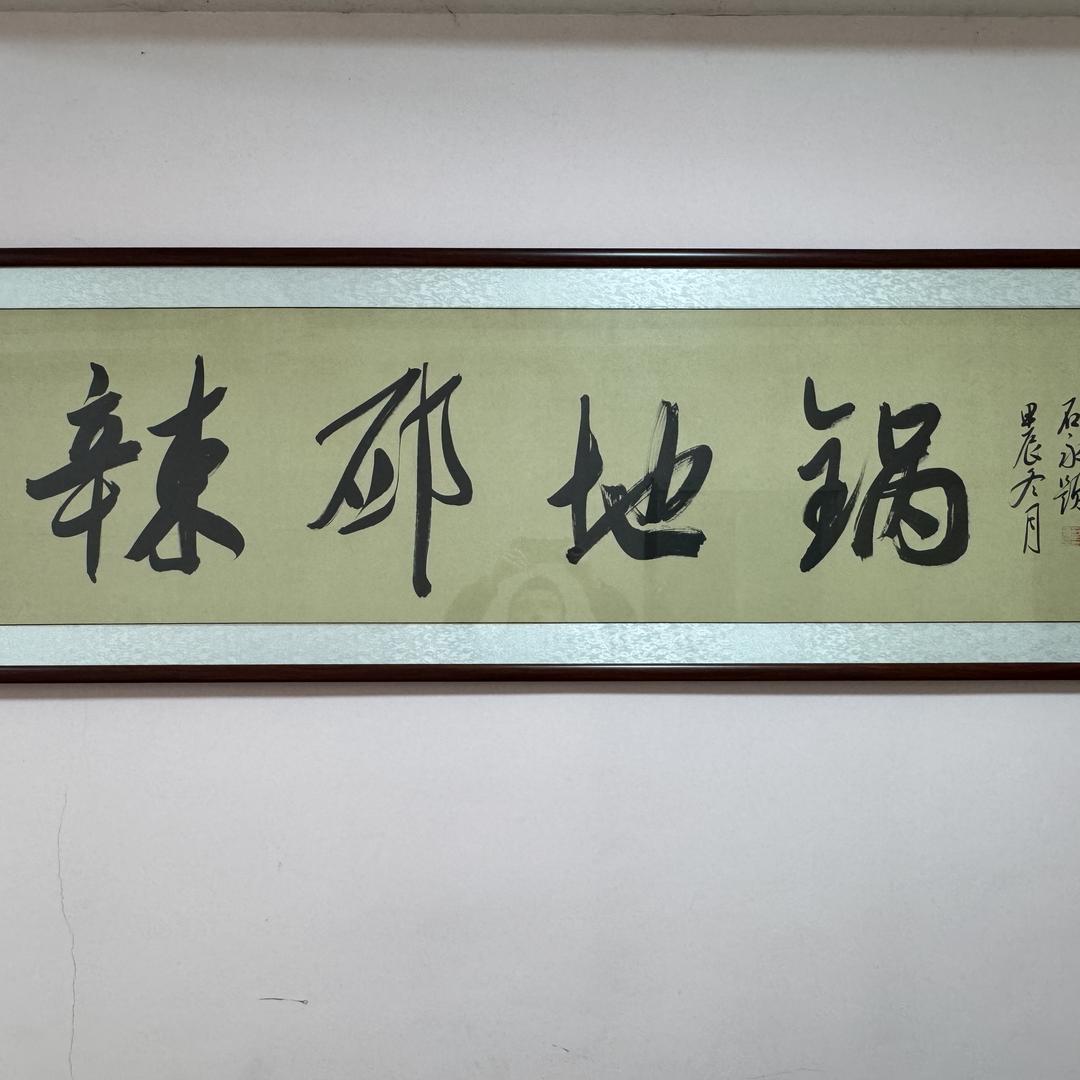 辣邳地锅
甲辰冬月
石永题